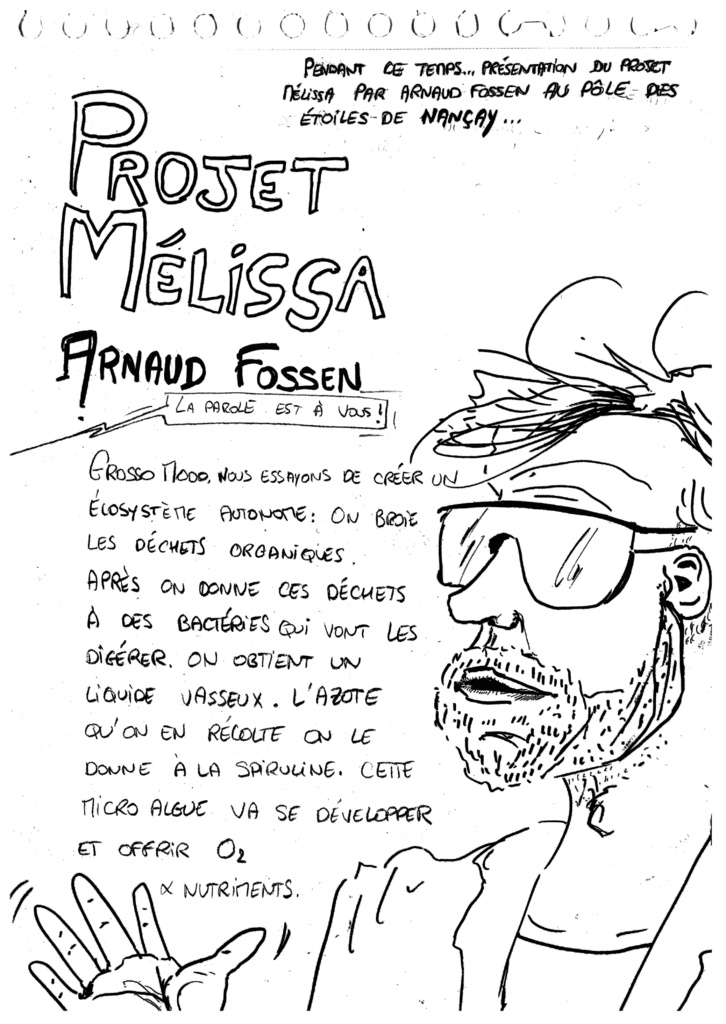 PENDANT CE TEMPS... PRÉSENTATION DU PROJET
MÉLISSA PAR ARNAUD FOSSEN AU PÔLE DES
ÉTOILES DE NANÇAY...
PROJET
MÉLISSA
ARNAUD FOSSEN
LA PAROLE EST À VOUS !
GROSSO MODO, NOUS ESSAYONS DE CRÉER UN
ÉCOSYSTÈME AUTONOME : ON BROIE
LES DÉCHETS ORGANIQUES.
APRÈS ON DONNE CES DÉCHETS
À DES BACTÉRIES QUI VONT LES
DIGÉRER. ON OBTIENT UN
LIQUIDE VASSEUX. L'AZOTE
QU'ON EN RÉCOLTE ON LE
DONNE À LA SPIRULINE. CETTE
MICRO ALGUE VA SE DÉVELOPPER
ET OFFRIR O₂
& NUTRIMENTS.